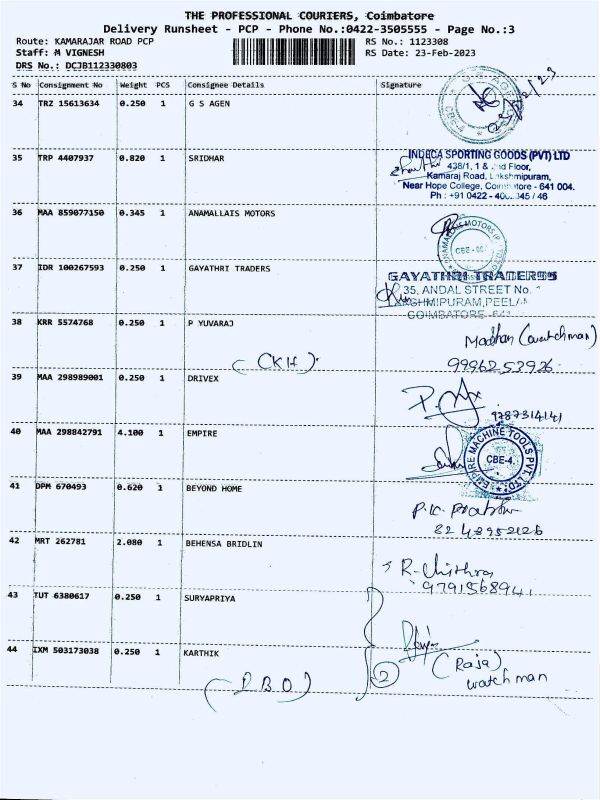 THE PROFESSIONAL COURIERS, Coimbatore
Delivery Runsheet - PCP - Phone No.:0422-3505555 - Page No.:3
Route: KAMARAJAR ROAD PCP RS No.: 1123308
Staff: M VIGNESH RS Date: 23-Feb-2023
DRS No.: DCJB112330803
S No Consignment No Weight PCS Consignee Details Signature
34 TRZ 15613634 0.250 1 G S AGEN
CBE-4
35 TRP 4407937 0.820 1 SRIDHAR
INDECA SPORTING GOODS (PVT) LTD
438/1, 1 & Floor,
Kamaraj Road, Lakshmipuram,
Near Hope College, Coimbatore - 641 004.
Ph : +91 0422 - 345 / 46
36 MAA 859077150 0.345 1 ANAMALLAIS MOTORS
37 IDR 100267593 0.250 1 GAYATHRI TRADERS
GAYATHRI TRADERS
35, ANDAL STREET No.
COIMBATORE
38 KRR 5574768 0.250 1 P YUVARAJ
Madhan (watchman)
9996253926
39 MAA 298989001 0.250 1 DRIVEX
9787314141
40 MAA 298842791 4.100 1 EMPIRE
EMPIRE MACHINE TOOLS PVT. LTD
CBE-4.
41 DPM 670493 0.620 1 BEYOND HOME
42 MRT 262781 2.080 1 BEHENSA BRIDLIN
R. Chithra
9791568941
43 TUT 6380617 0.250 1 SURYAPRIYA
44 IXM 503173038 0.250 1 KARTHIK
2
(Raja)
watchman